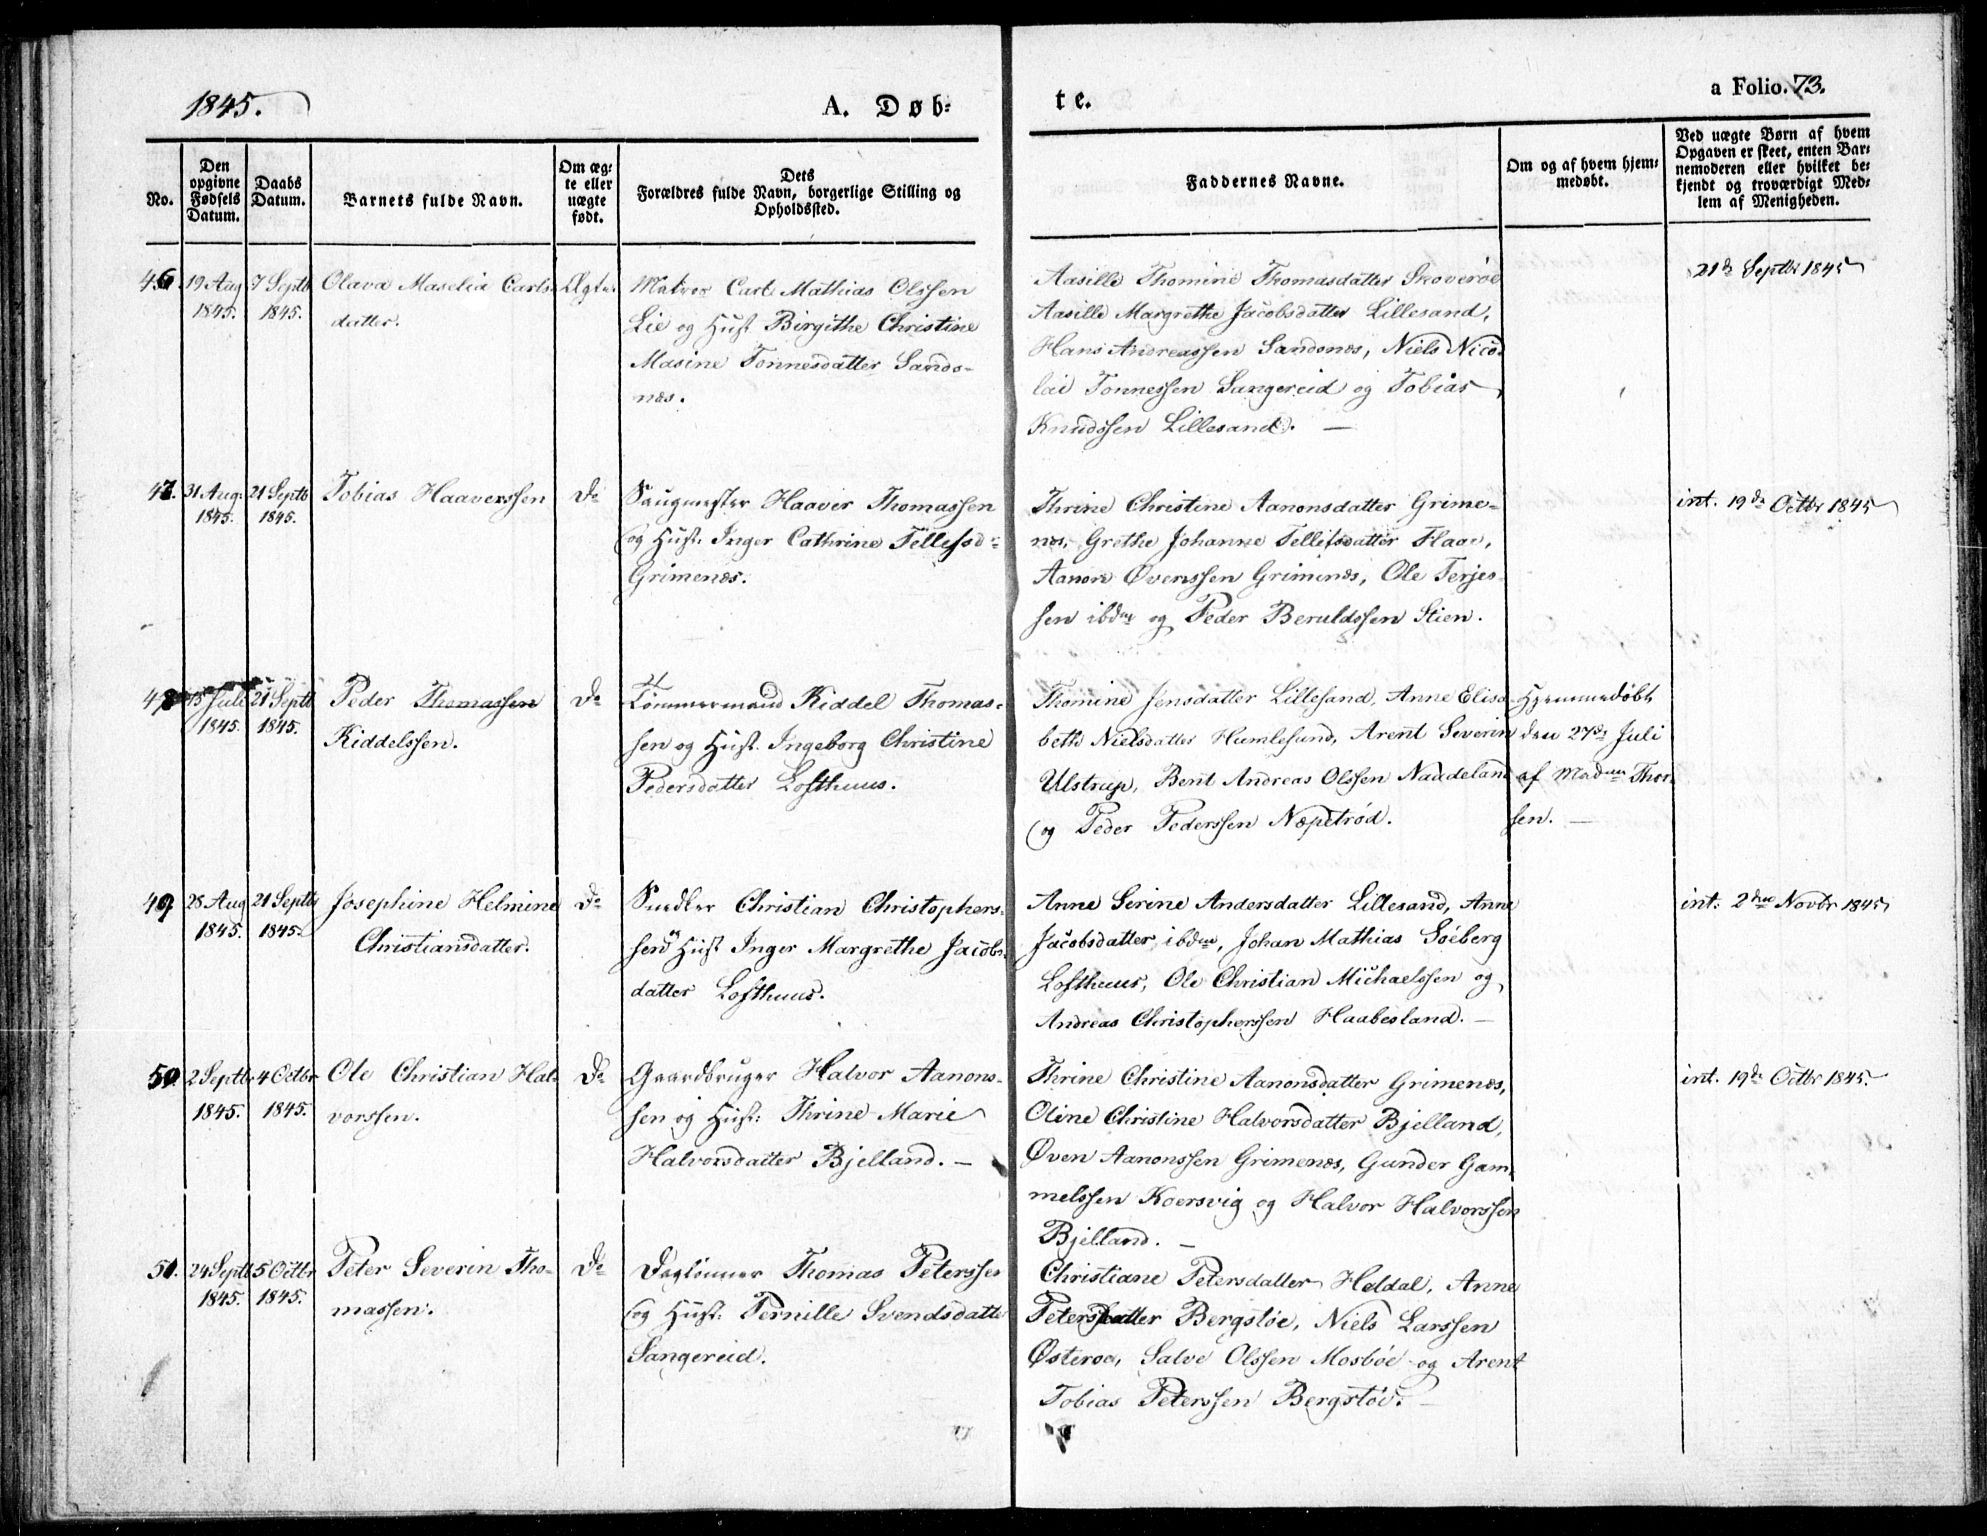 1845.
A. Døb=
te.
a Folio. 73.
No.
Den opgivne Fødsels Datum.
Daabs Datum.
Barnets fulde Navn.
Om æg= te eller uægte født.
Dets Forældres fulde Navn, borgerlige Stilling og Opholdssted.
Faddernes Navne.
Om og af hvem hjem= medøbt.
Ved uægte Børn af hvem Opgaven er skeet, enten Bar= nemoderen eller hvilket be= kjendt og troværdigt Med= lem af Menigheden.
46.
19 Aug
1845.
7 Septb
1845.
Olava Maselia Carls-
datter.
Ægte
Matros Carl Mathias Olssen
Lie og Hust Birgithe Christine
Masine Tønnesdatter Sando-
næs.
Aasille Thomine Thomasdatter Skoverøe
Aasille Margrethe Jacobsdatter Lillesand,
Hans Andreassen Sandonæs, Niels Nico-
lai Tønnessen Sangereid og Tobias
Knudssen Lillesand. —
21de Septbr 1845
47.
31 Aug.
1845.
21 Septb
1845.
Tobias Haaverssen
Do
Saugmester Haaver Thomassen
og Hust: Inger Cathrine Tellefsd-
Grimenæs.
Thrine Christine Aanonsdatter Grime-
næs, Grethe Johanne Tellefsdatter Flaae,
Aanon Øvenssen Grimenæs, Ole Terjes-
sen ibdm og Peder Beruldssen Stien.
int. 19de Octbr 1845
48
15 Juli
1845.
21 Septb
1845.
Peder Thomassen
Kiddelssen.
Do
Tømmermand Kiddel Thomas-
sen og Hust. Ingeborg Christine
Pedersdatter Lofthuus.
Thomine Jensdatter Lillesand, Anne Elisa-
beth Nielsdatter Humlesund, Arent Severin
Ulstrup, Bent Andreas Olssen Naadeland
og Peder Pederssen Næpetrød.
Hjemmedøbt
den 27de Juli
af Madm Thor-
sen. —
49
28 Aug
1845.
21 Septb
1845.
Josephine Helmine
Christiansdatter.
Do
Snedker Christian Christophers-
sen og Hust Inger Margrethe Jacobs-
datter Lofthuus.
Anne Serine Andersdatter Lillesand, Anne
Jacobsdatter ibdm, Johan Mathias Søeberg
Lofthuus, Ole Christian Michaelssen og
Andreas Christopherssen Haabesland. —
int: 2den Novbr 1845
50.
2 Septbr
1845.
4 Octbr
1845.
Ole Christian Hal-
vorssen.
Do
Gaardbruger Halvor Aanons-
sen og Hust: Thrine Marie
Halvorsdatter Bjelland. —
Thrine Christine Aanonsdatter Grimenæs,
Oline Christine Halvorsdatter Bjelland,
Øven Aanonssen Grimenæs, Gunder Gam-
melssen Koersvig og Halvor Halvorssen
Bjelland. —
int. 19de Octbr 1845.
51.
24 Septb
1845.
5 Octbr
1845.
Peter Severin Tho-
massen.
Do
Daglønner Thomas Peterssen
og Hust: Pernille Svendsdatter
Sangereid.
Christiane Petersdatter Heldal, Anne
Petersdatter Bergstøe, Niels Larssen
Østerøe, Salve Olssen Mosbøe og Arent
Tobias Peterssen Bergstøe. —